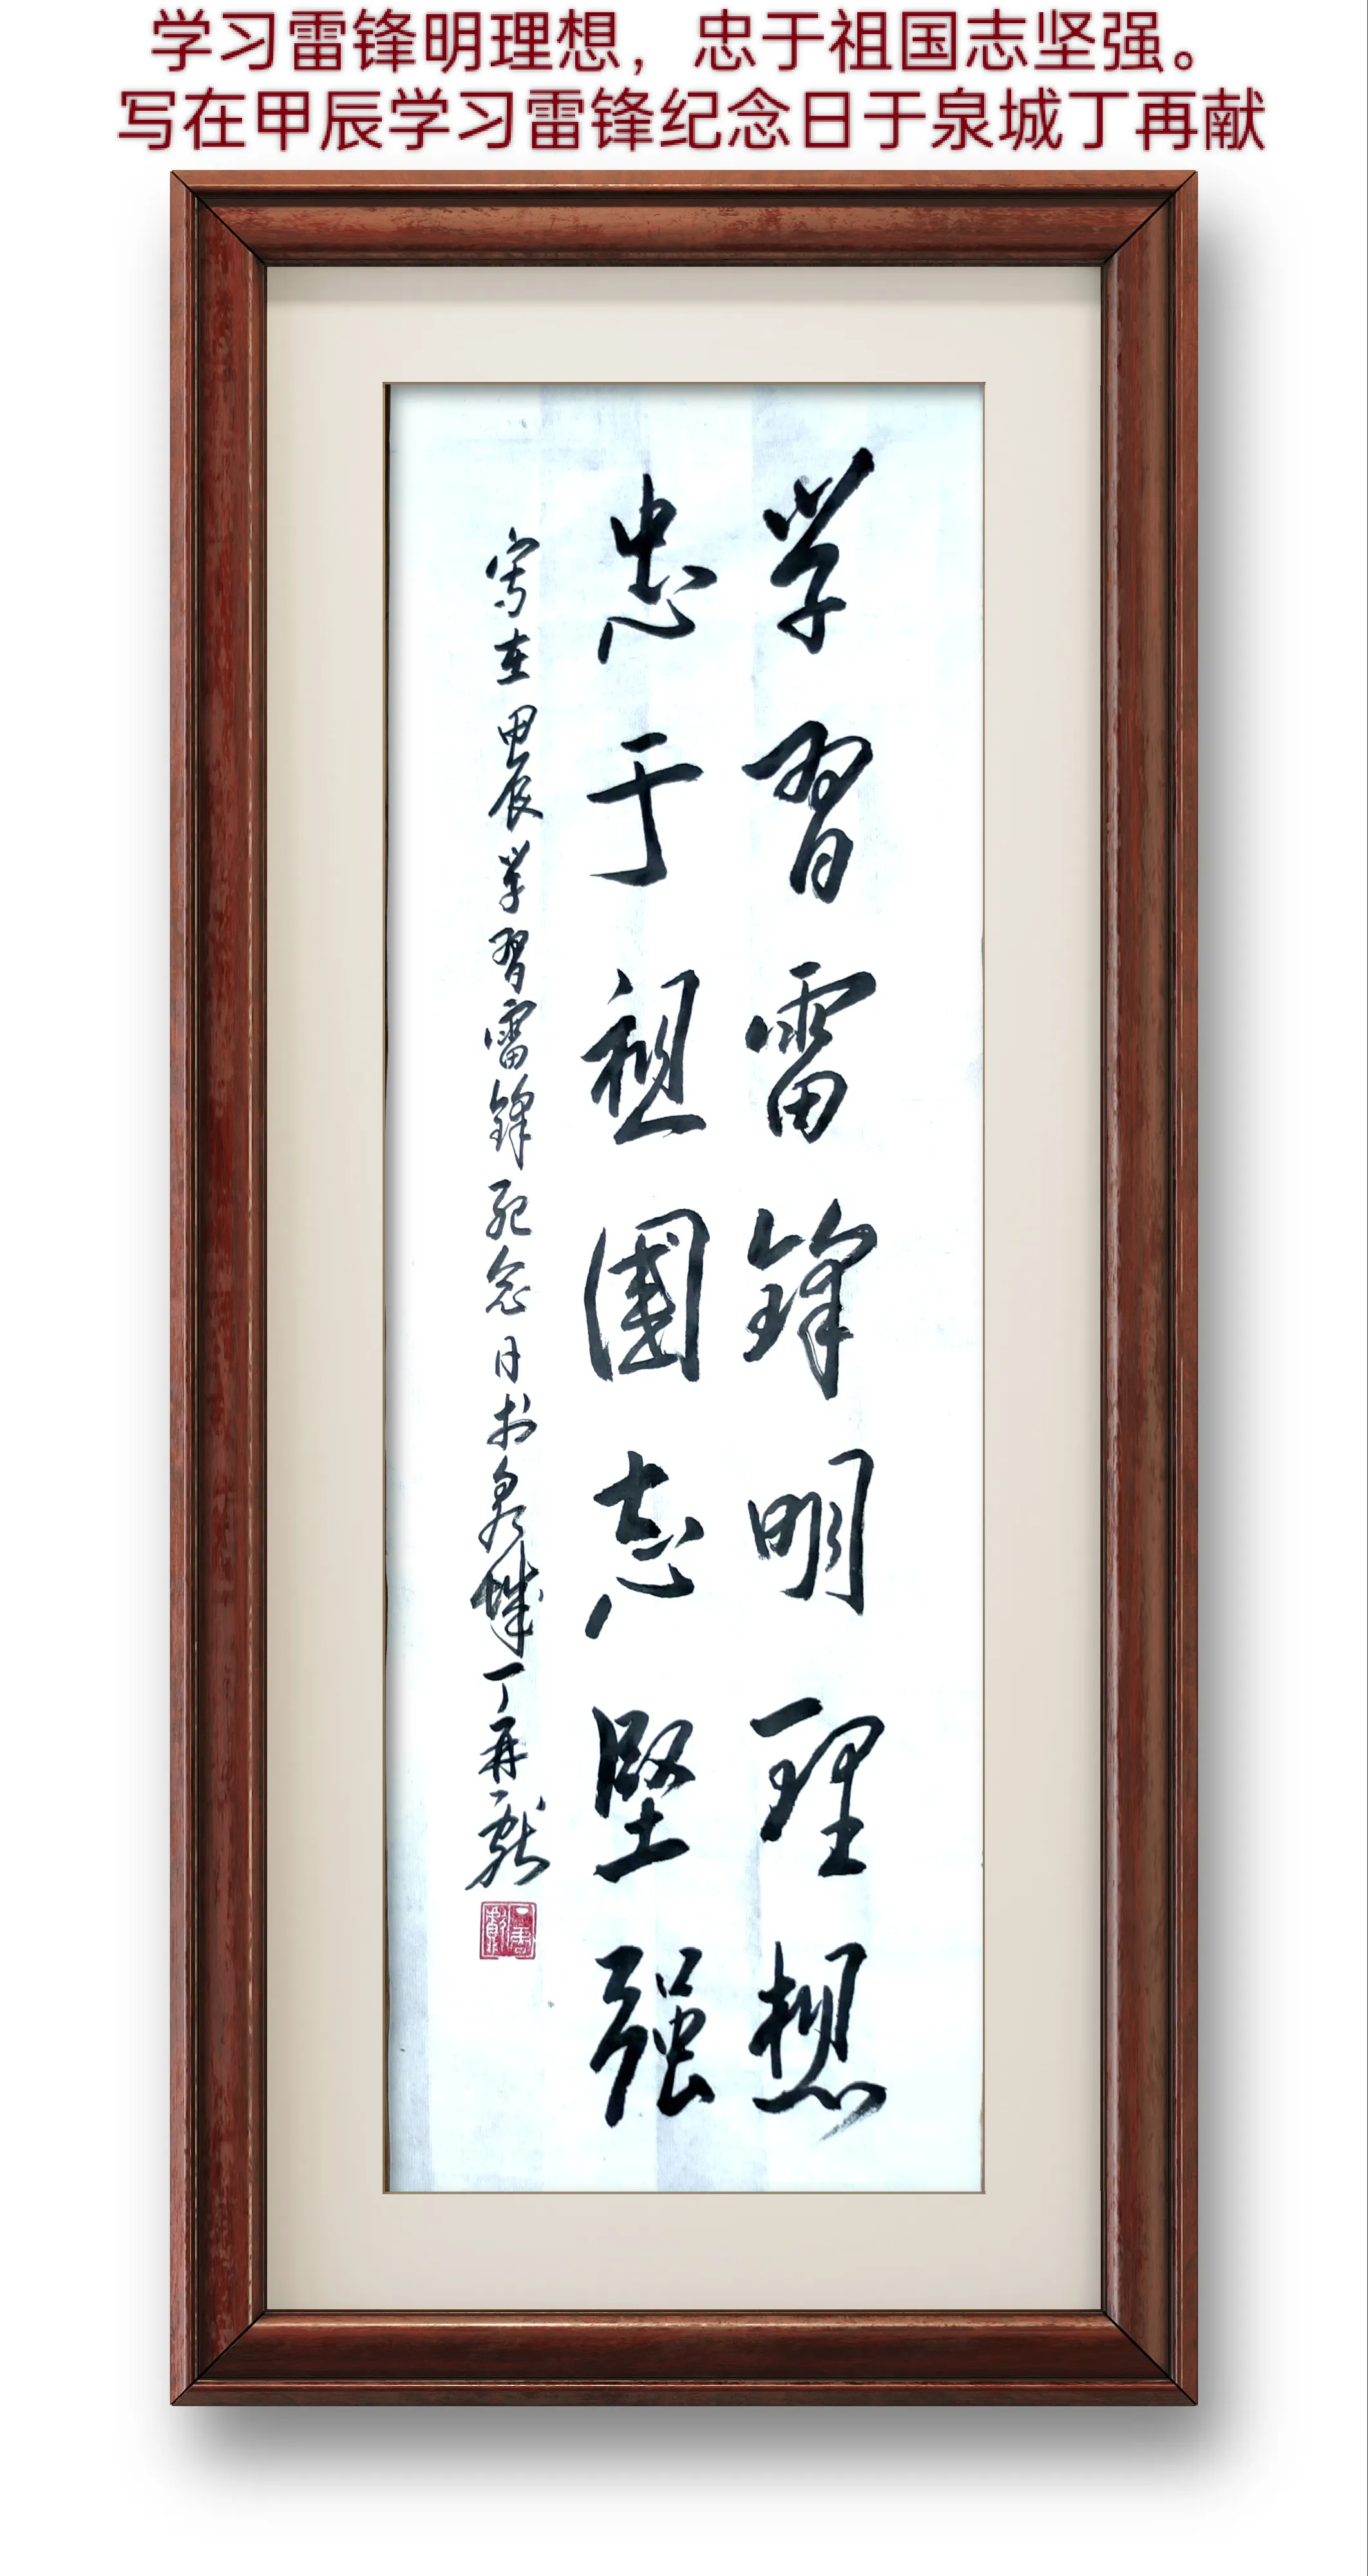 学习雷锋明理想，忠于祖国志坚强。
写在甲辰学习雷锋纪念日于泉城丁再献
学習雷鋒明理想
忠于祖國志堅强
寫在甲辰学習雷鋒紀念日於泉城丁再献